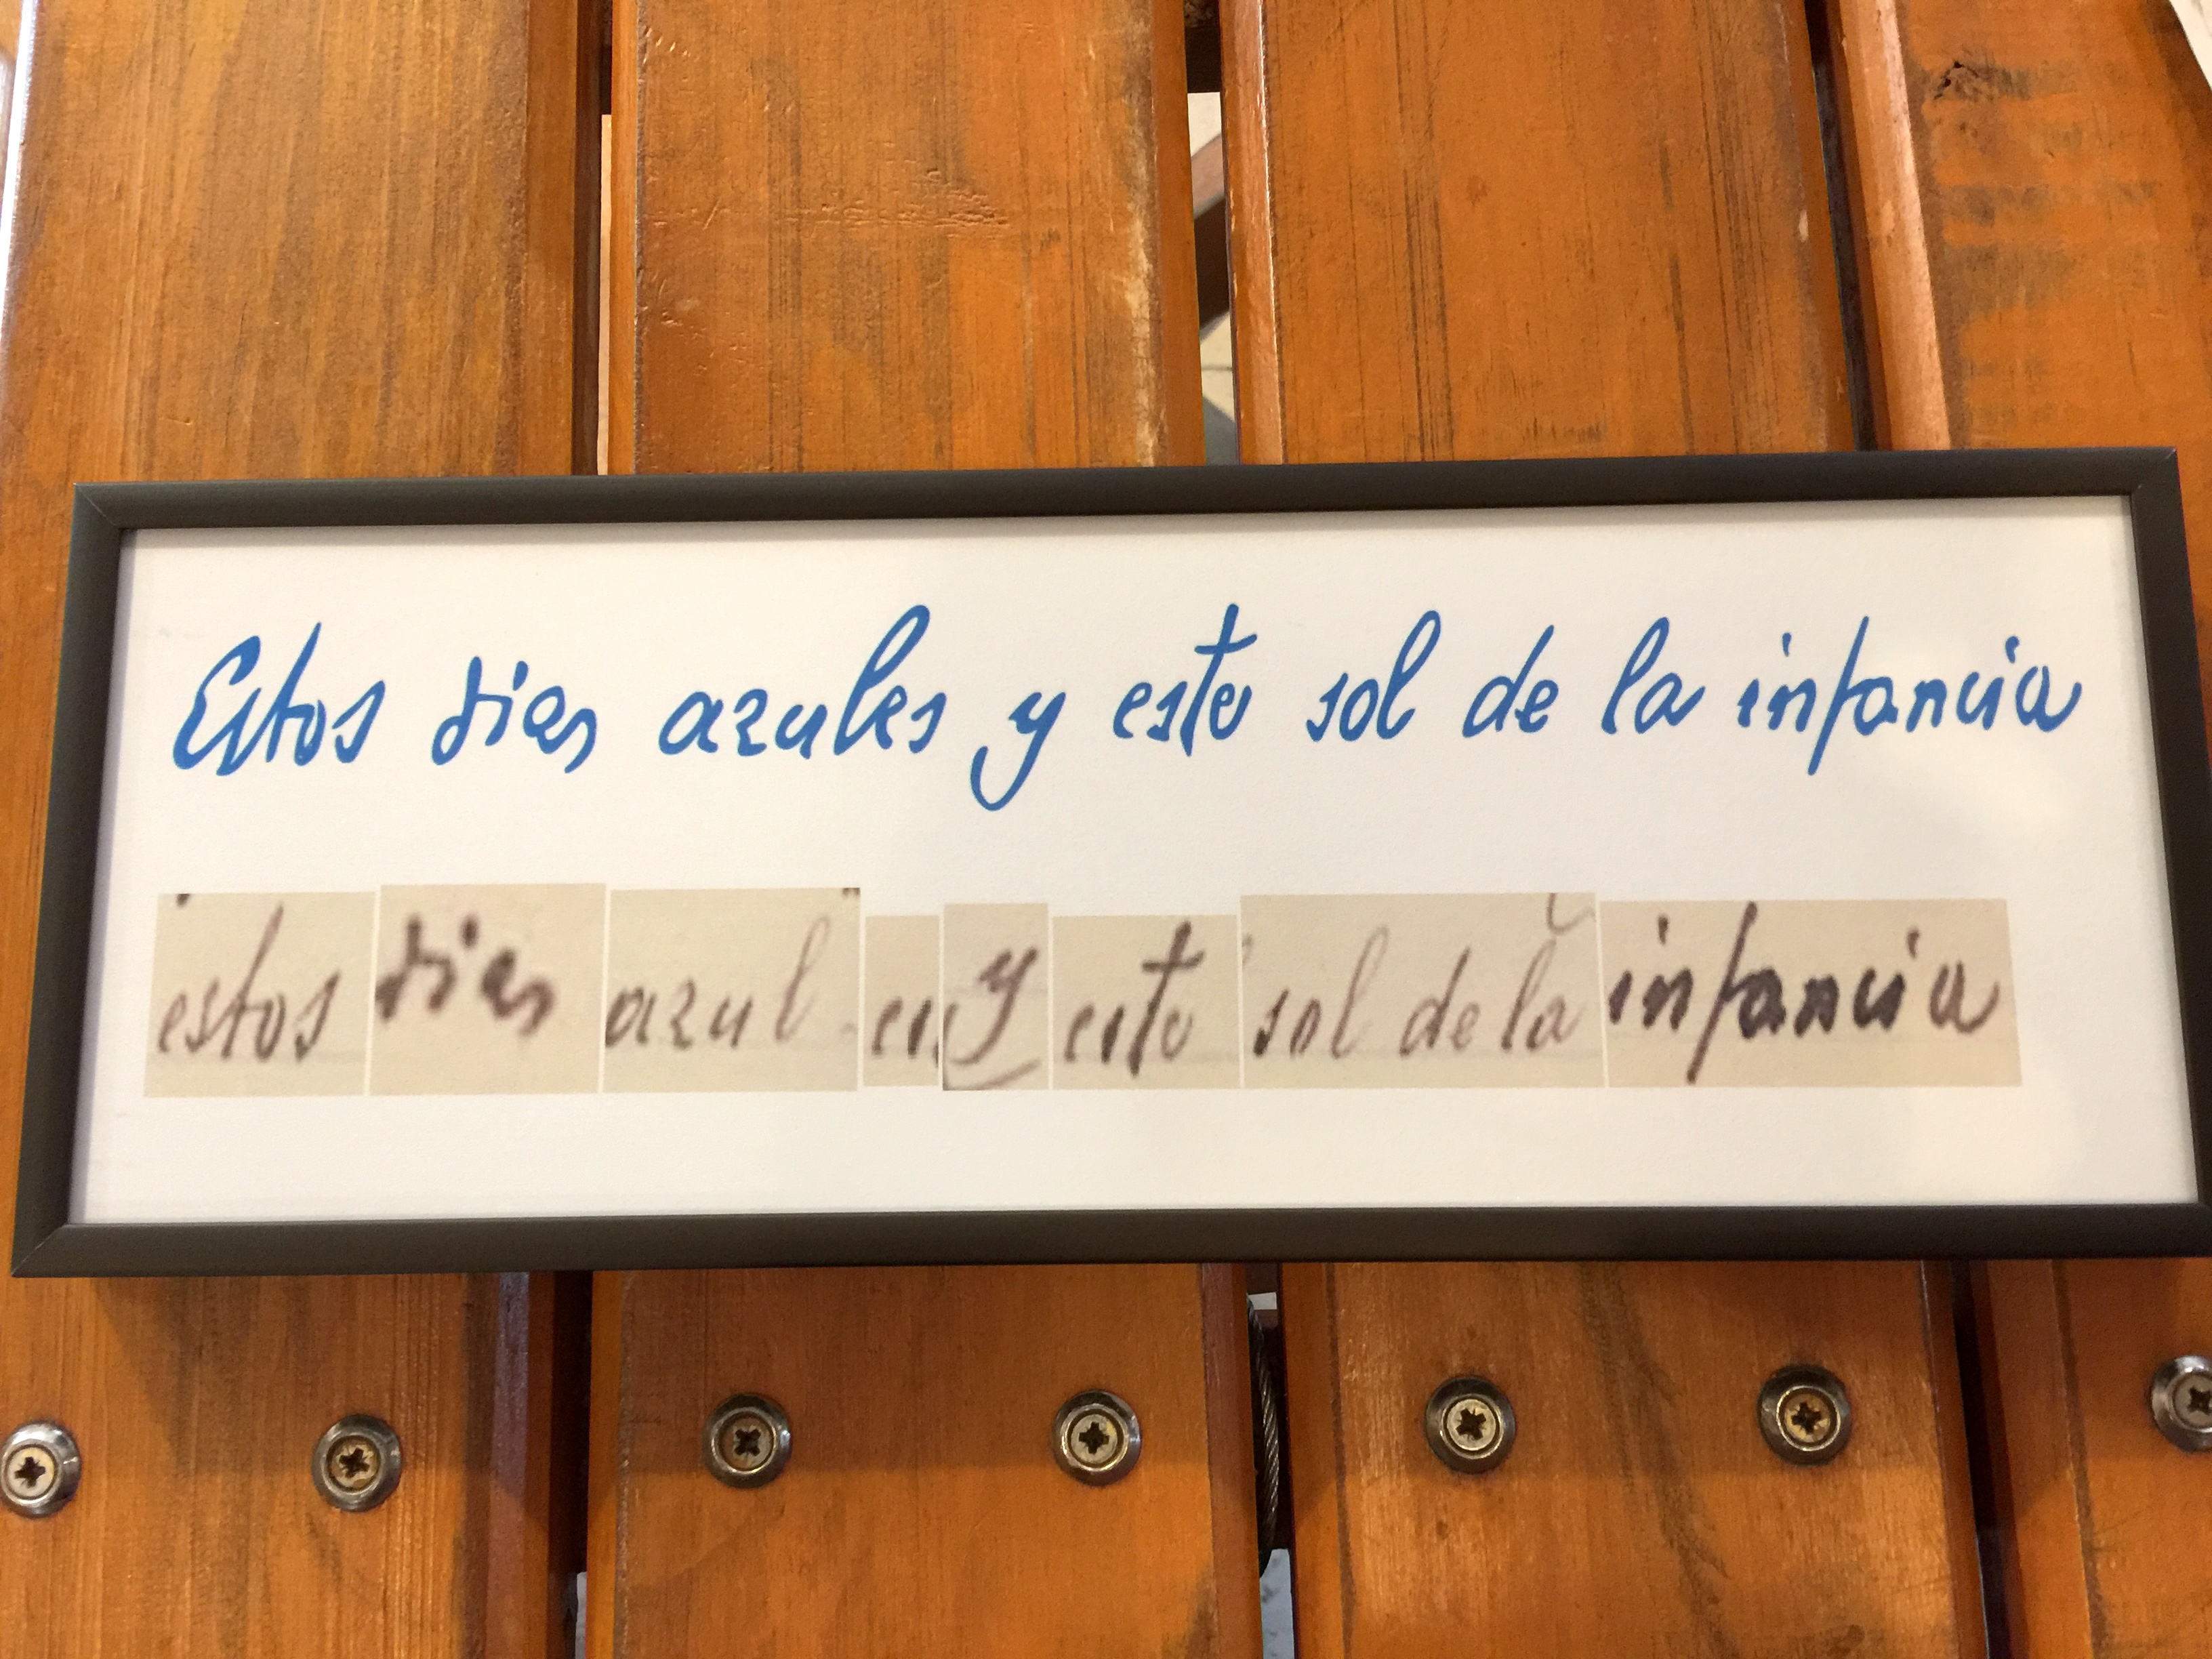 Estos dias azules y este sol de la infancia
estos dias azul es y este sol de la infancia